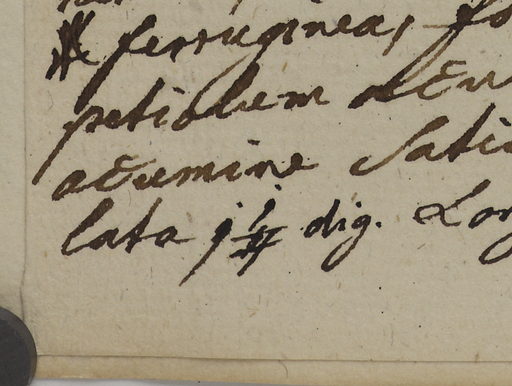 ferruginea, fo
petiolum acu
acumine sati
lata j 1/4 dig. Lon